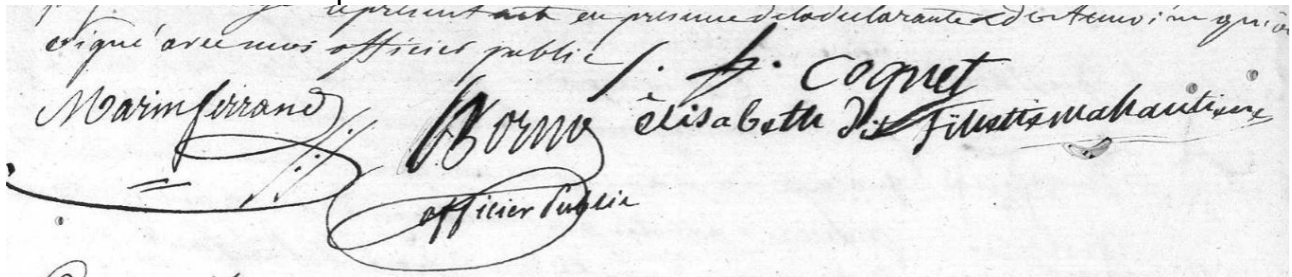 représent acte en présence de la déclarante et des temoins qui o
signé avec nous officier public
f. h. coquet
Marin ferrand
Borne
elisabeth dit
officier Public